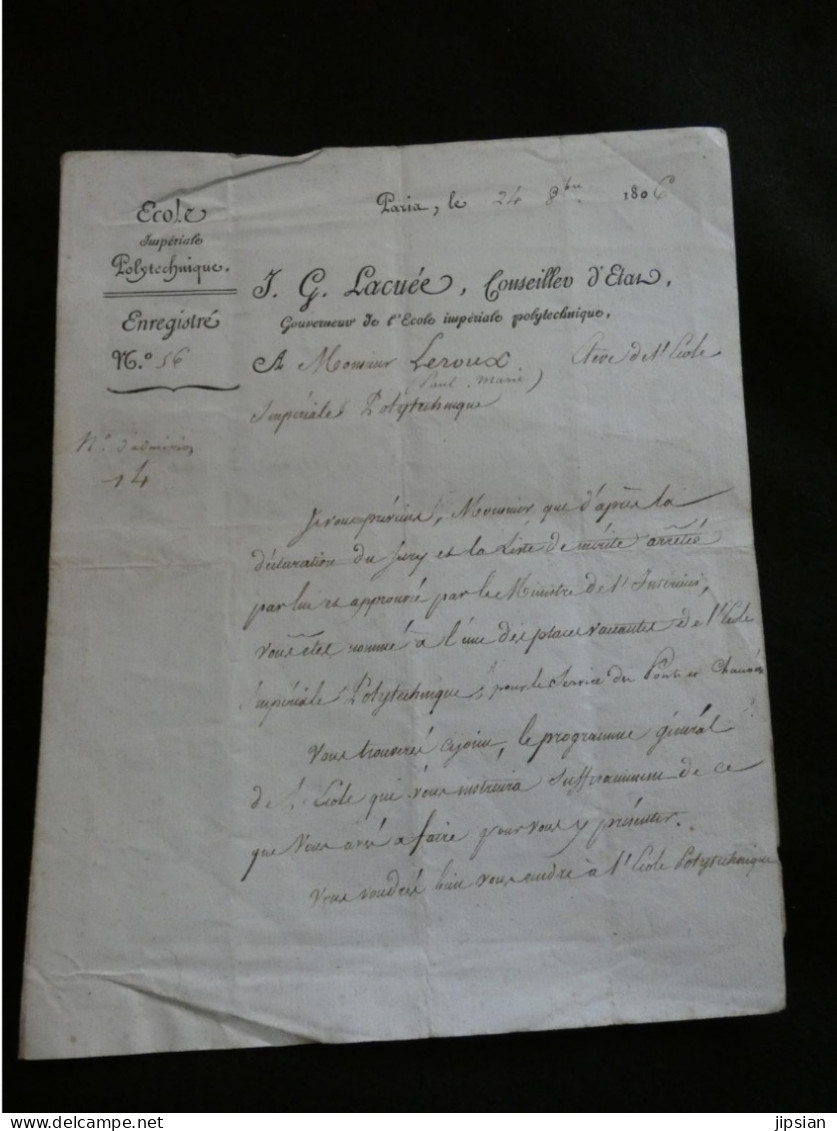 Ecole
Impériale
Polytechnique.
Enregistré
N.º 56
Nº d'admission
14
Paris, le 24 8bre 1806
J. G. Lacuée, Conseiller d'Etat,
Gouverneur de l'Ecole impériale polytechnique,
A Monsieur Leroux Elève de l'Ecole
(Paul-Marie)
Impériale Polytechnique
Je vous préviens, Monsieur que d'après la
déclaration du Jury et la Liste de mérite arrêtée
par lui et approuvée par le Ministre de l'Intérieur,
vous êtes nommé à l'une des places vacantes de l'Ecole
Impériale Polytechnique, pour le Service des Ponts et Chaussées
Vous trouverés cijoint, le programme général
de l'Ecole qui vous instruira suffisamment de ce
que vous avés à faire pour vous y présenter.
Vous voudrés bien vous rendre à l'Ecole Polytechnique
jipsian